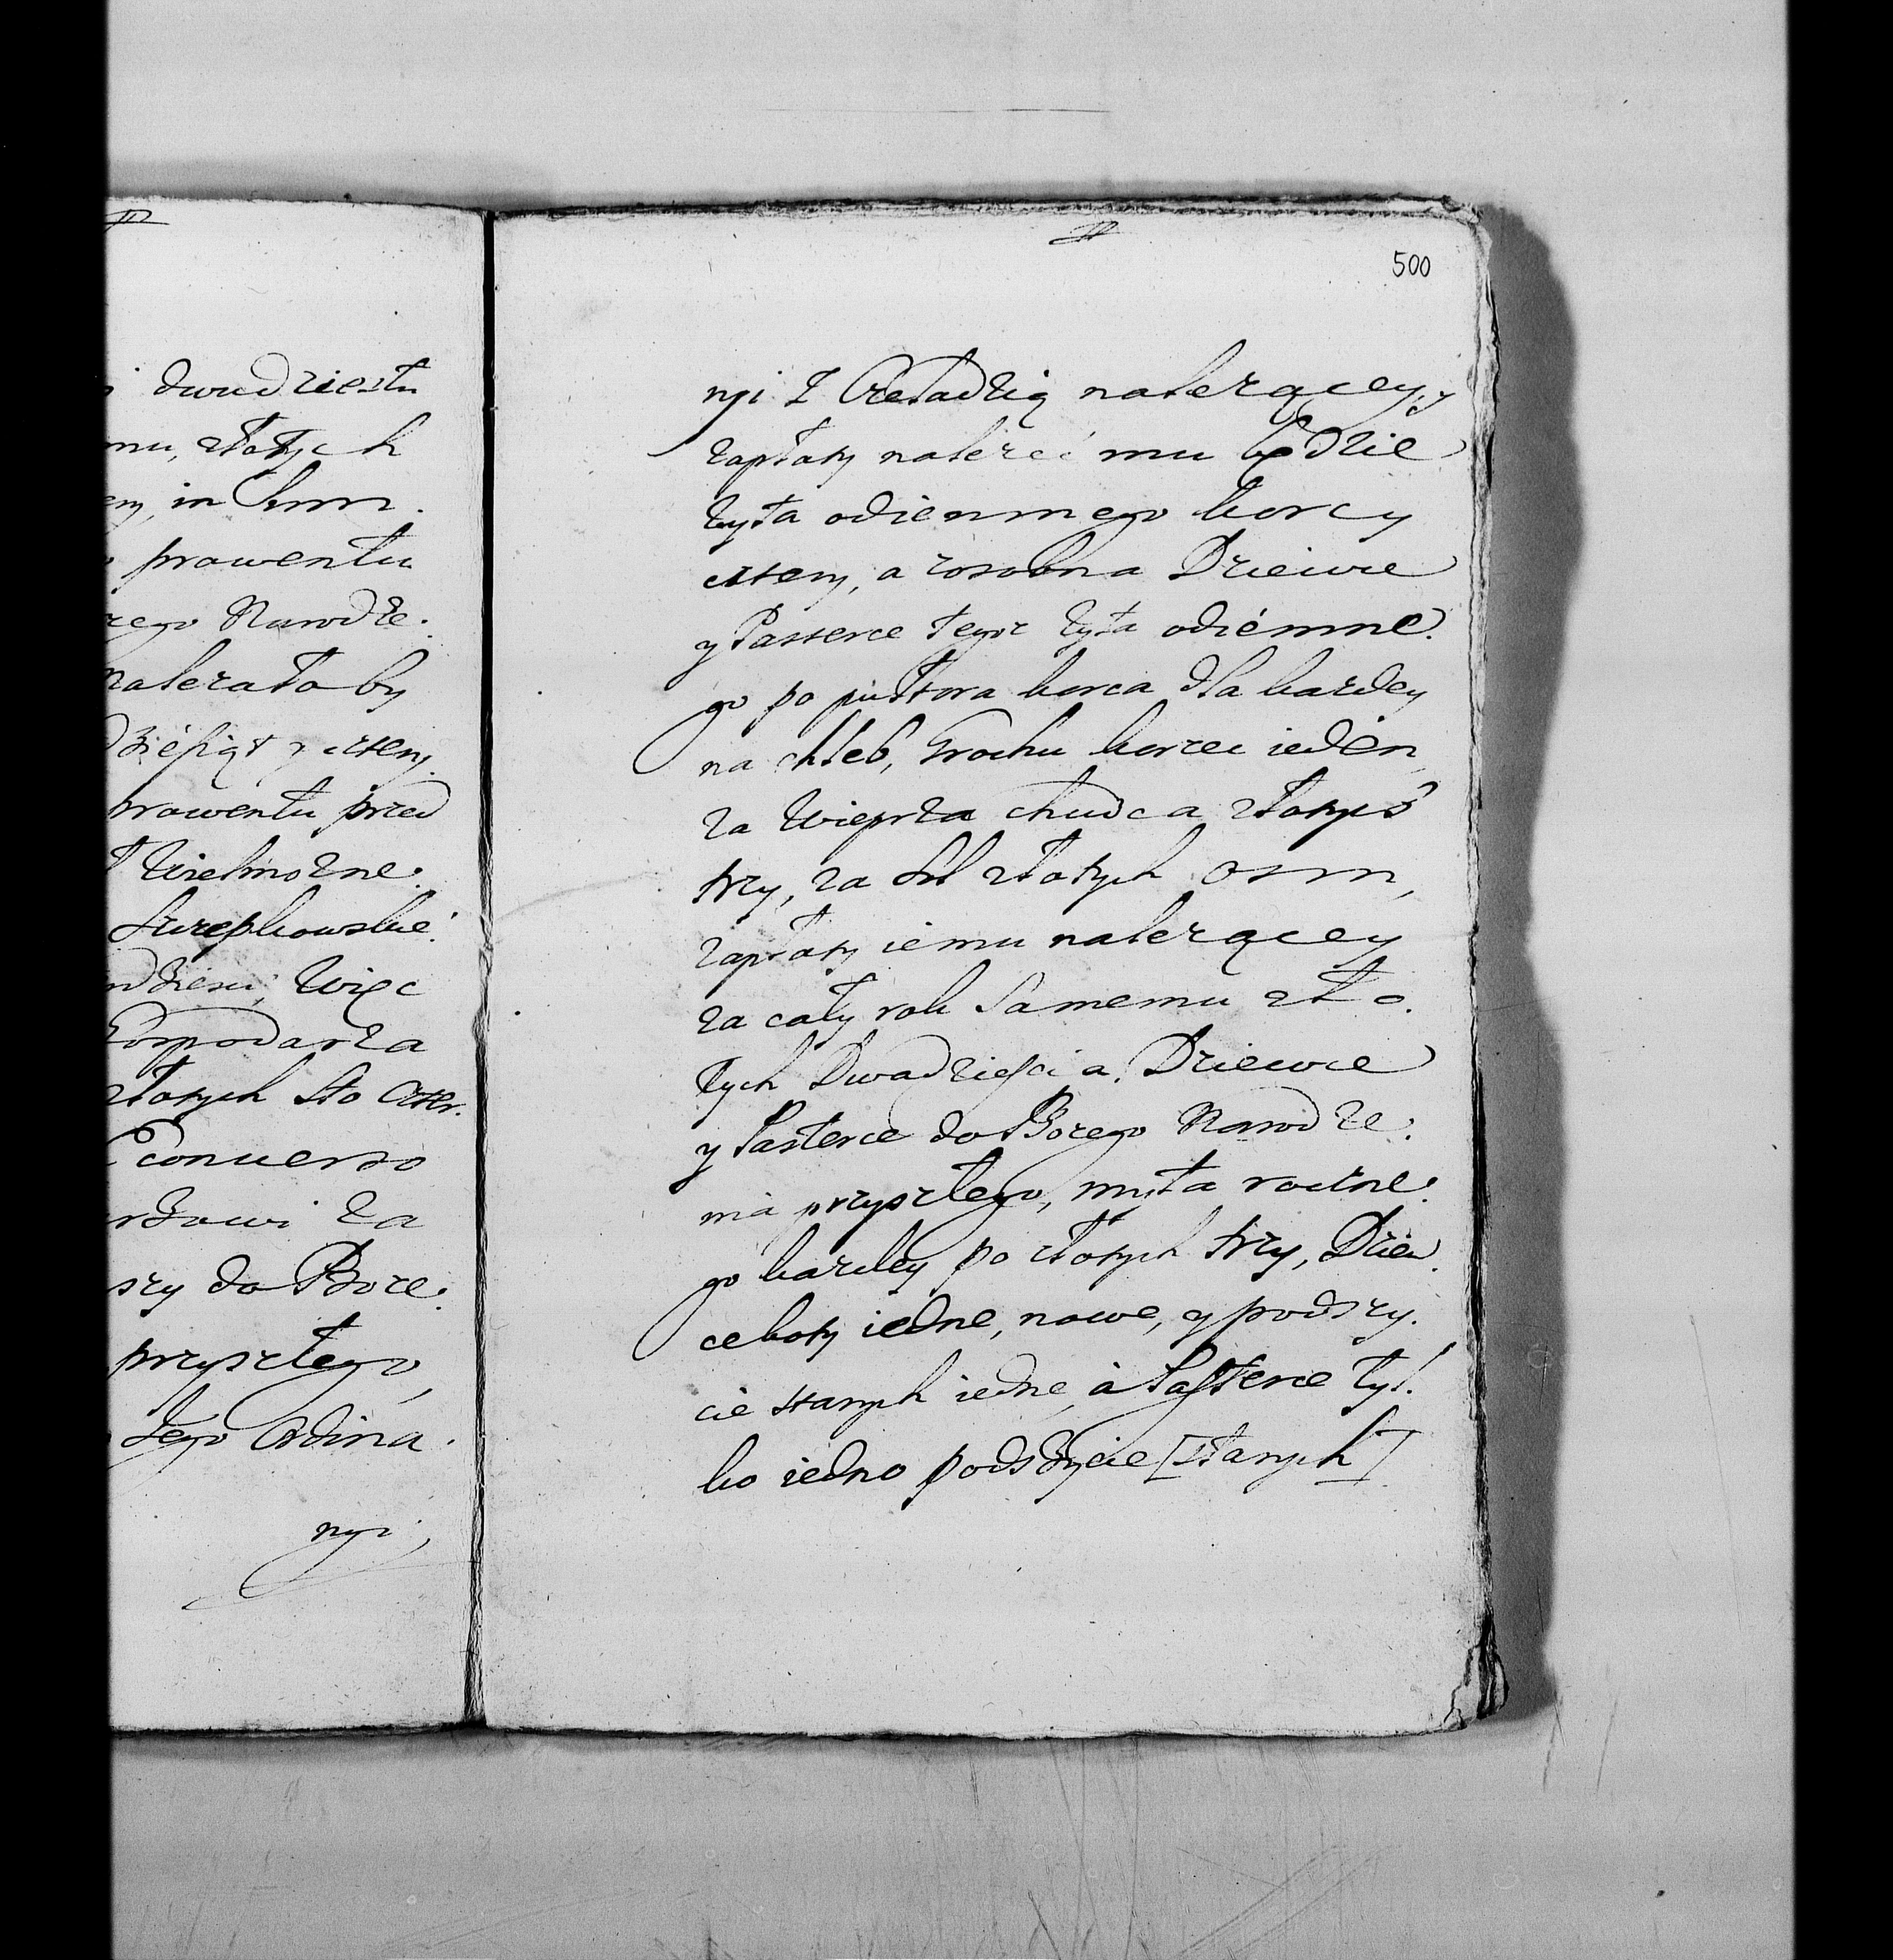 dwudziestu
mu, złotych
in Sum̃.
prowentu
Narodze.
należało by
prowentu przed
Wielmożne.
Strzępkowskié.
Więc
Gospodarza
złotych sto czter.
Econverso
za
do Boże.
przyszłego,
tego Ordina.
nyi
500
nyi z Czeladzią należącey, y
zapłaty należeć mu będzie
żyta odiemnego korcy
cztery, a zosobna Dziewce
y Pasterce tegoż żyta odiémne.
go po pułtora korca dla kazdey
na chleb, Grochu korzec iedén,
za Wieprza chudca złotych
trzy, za sól złotych osm,
zapłaty iemu należącey
za cały rok samemu zło.
tych Dwadzieścia. Dziewce
y Pasterce do Bożego Narodze.
nia przyszłego, myta roczne.
go kazdey po złotych trzy, Dziew.
ce boty iedne, nowe, y podszy.
cie starych iedne, à Pasterce tyl.
ko iedno podszycie [starych]